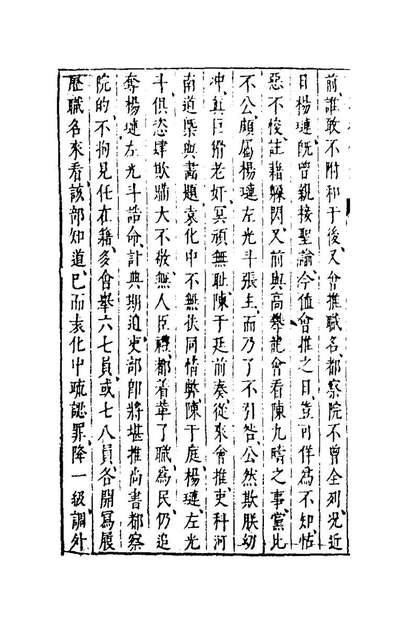 前誰敢不附和于後又會推職名都察院不曾全列況近
日楊漣既曾親接聖諭今値會推之日豈可佯為不知怙
惡不悛註藉躱閃又前與高攀龍會看陳九疇之事黨比
不公頗屬楊漣左光斗張主而乃了不引咎公然欺朕幼
冲真巨猾老奸冥頑無耻陳于廷前奏從來會推吏科河
南道㮣與袁化中不無扶同情弊陳于庭楊漣左光
斗俱恣肆欺瞞大不敬無人臣禮都着革了職為民仍追
奪楊漣左光斗誥命計典期迫吏部即將堪推尚書都察
院的不拘見任在籍多會舉六七員或七八員各開寫履
歷職名來看該部知道已而袁化中疏認罪降一級調外